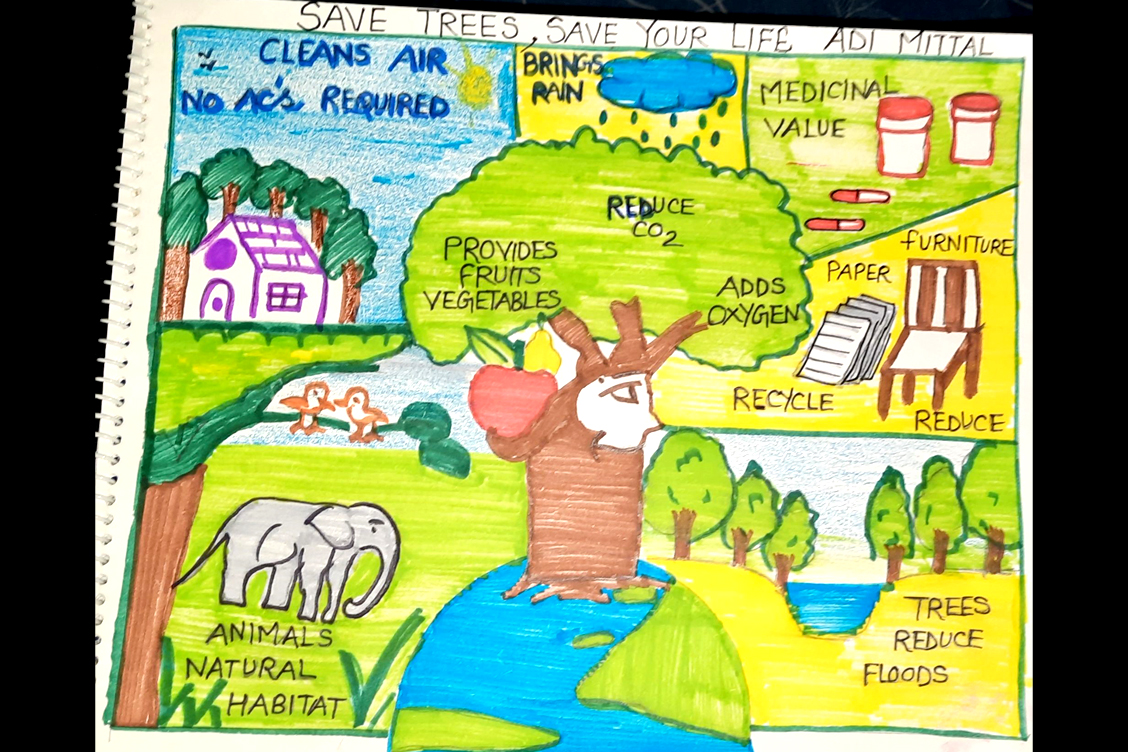 SAVE TREES, SAVE YOUR LIFE ADI MITTAL
CLEANS AIR
NO AC's REQUIRED
BRINGS
RAIN
MEDICINAL
VALUE
REDUCE
CO2
PROVIDES
FRUITS
VEGETABLES
ADDS
OXYGEN
FURNITURE
PAPER
RECYCLE
REDUCE
ANIMALS
NATURAL
HABITAT
TREES
REDUCE
FLOODS